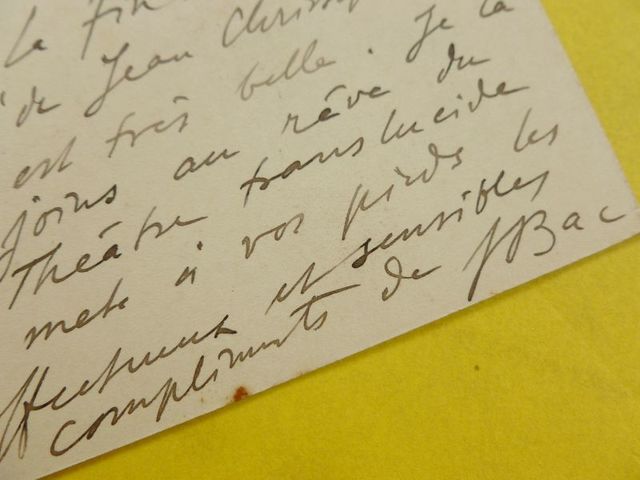 la fin
de Jean Christ
est très belle. Je la
joins au rêve du
Théâtre translucide
mets à vos pieds les
ffectueux et sensibles
compliments de JBac